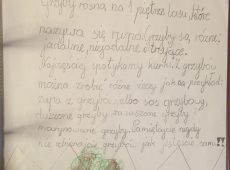 Grzyby rosną na 1 piętrze lasu, które
nazywa się runo. Grzyby są różne:
jadalne, niejadalne i trujące.
Najczęściej spotykamy kurki. Z grzybów
można zrobić różne rzeczy jak na przykład:
zupa z grzybów albo sos grzybowy,
duszone grzyby, suszone grzyby
marynowane grzyby. Pamiętajcie nigdy
nie zbierajcie grzybów jak jesteście sami!!